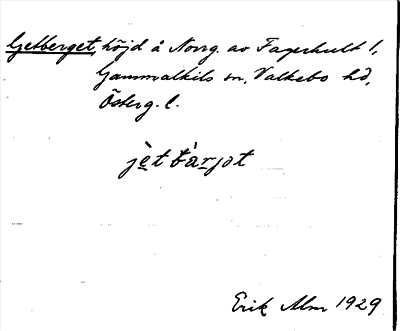 Getberget, höjd å Norrg. av Fagerhult 1,
Gammalkils sn, Valkebo hd,
Österg. l.
jètbàrjət
Erik Alm 1929